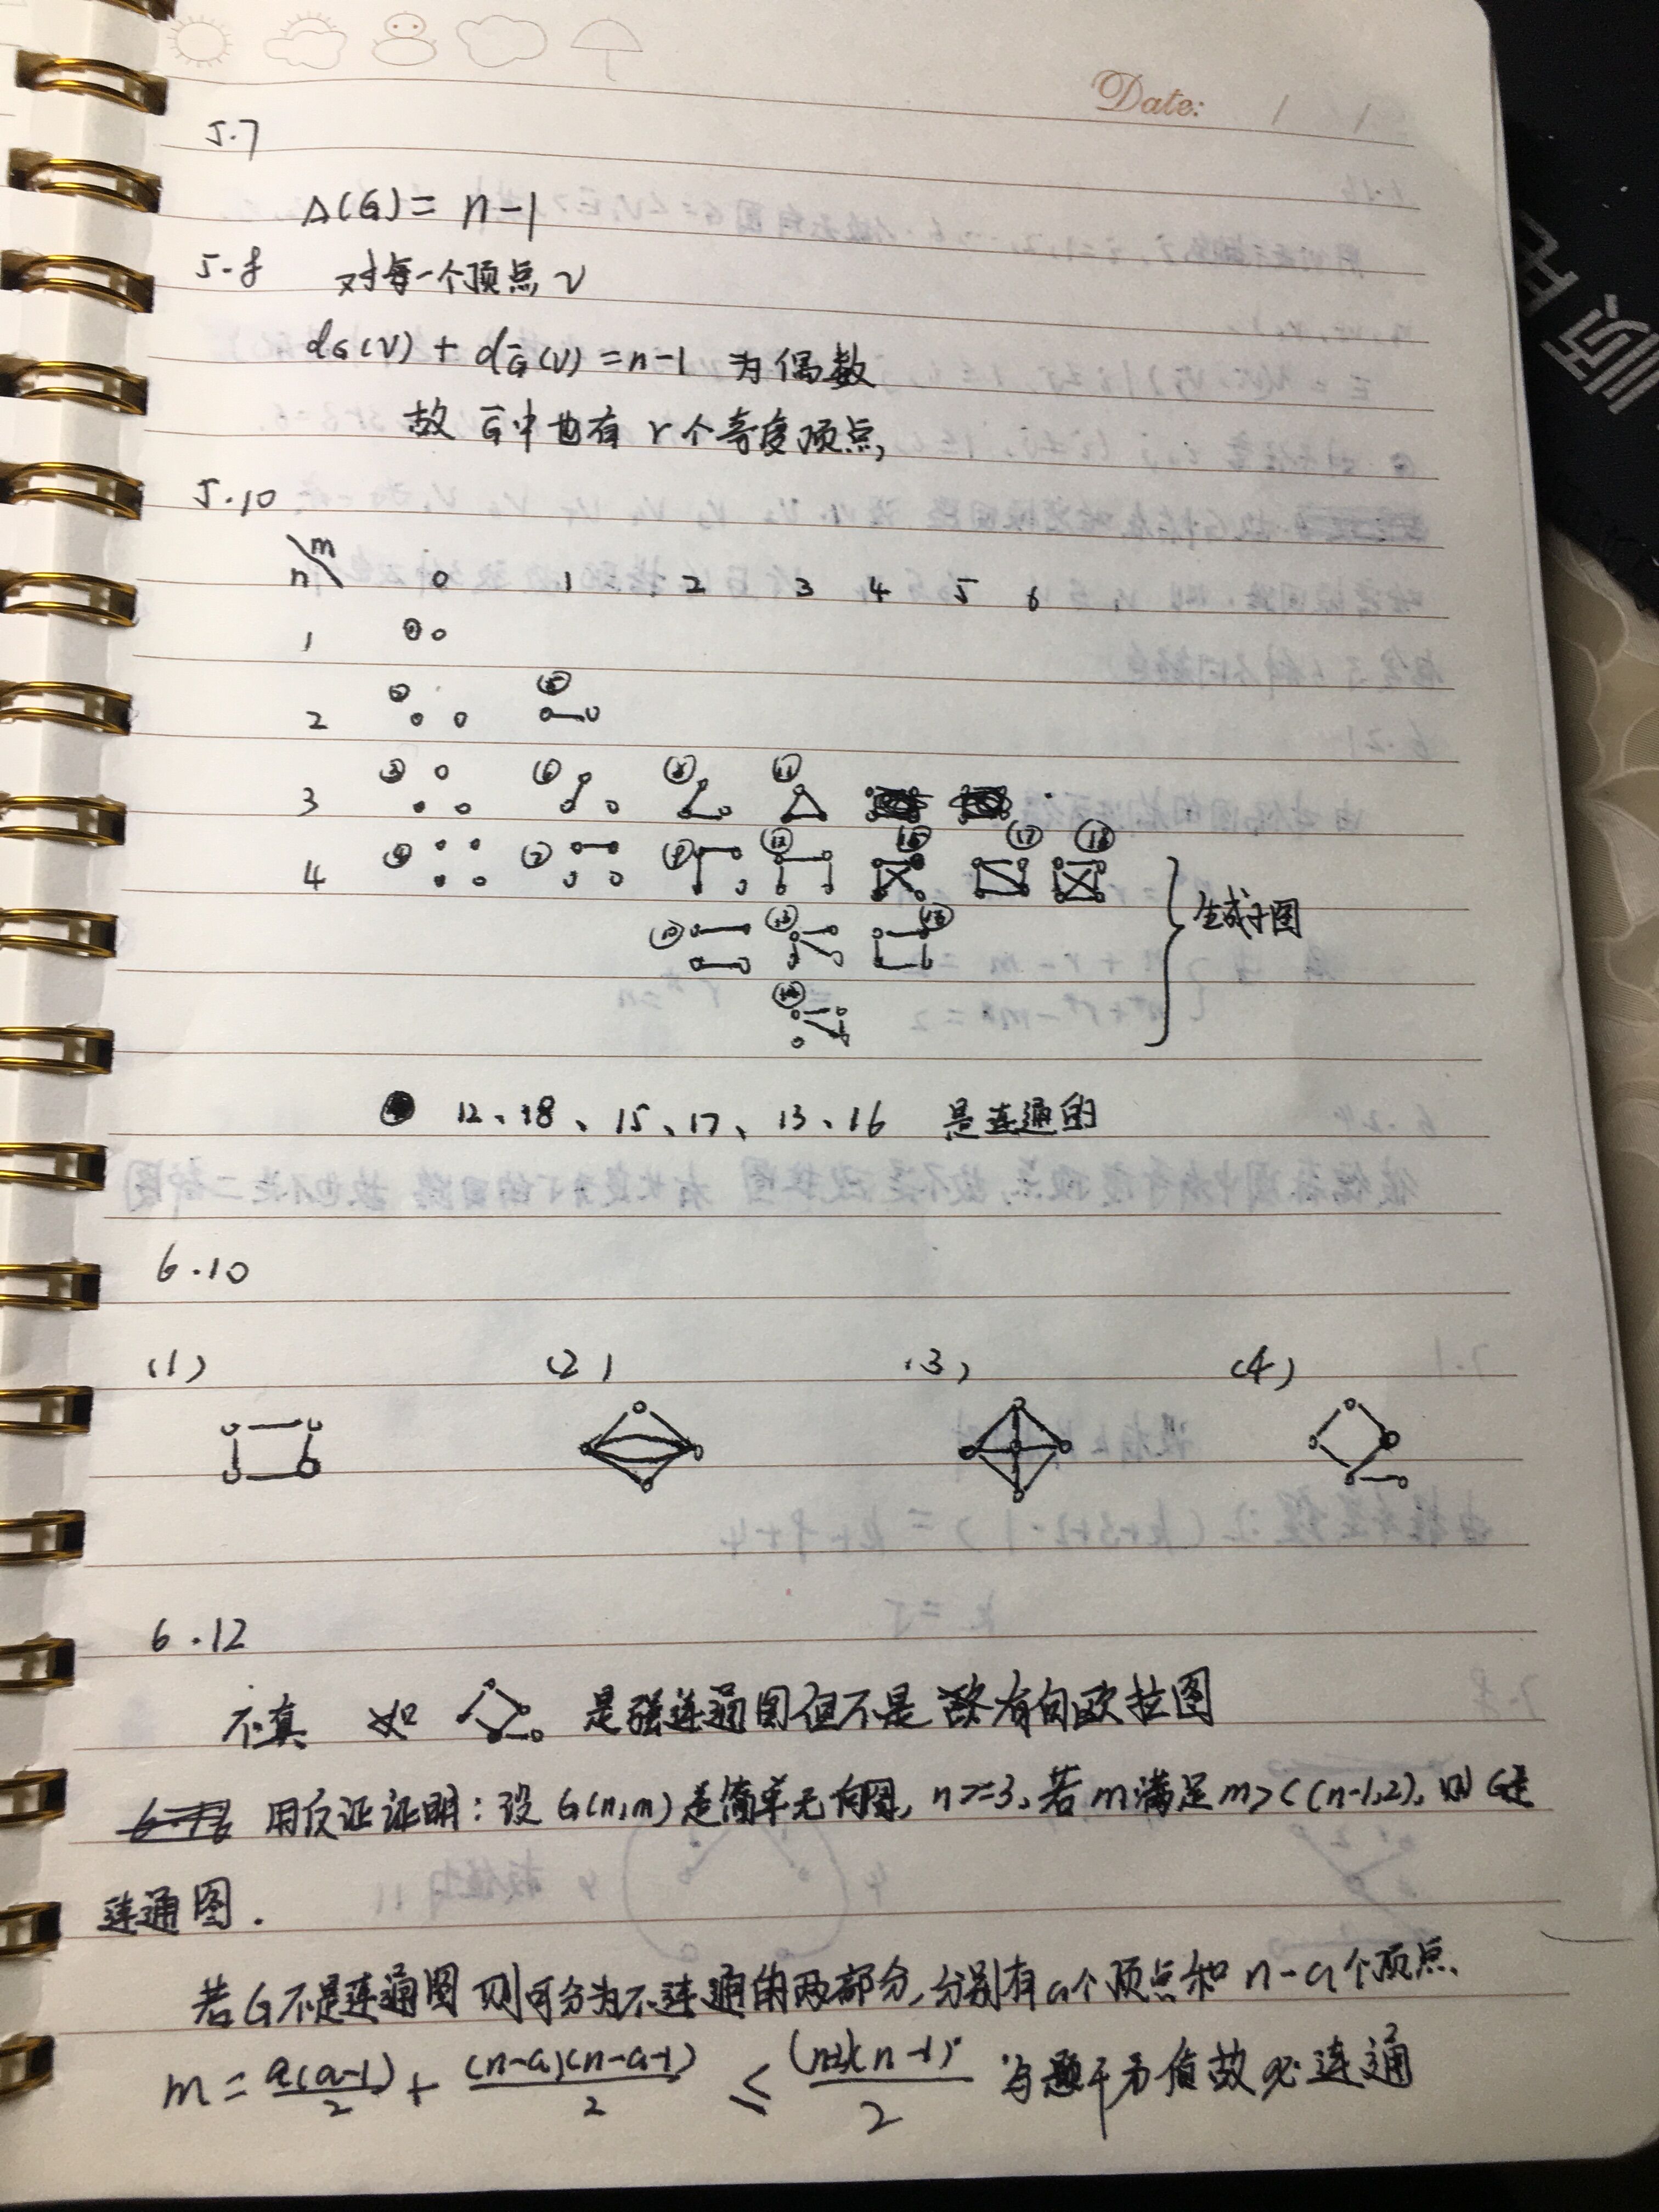 Date: / /
5.7
Δ(G) = n-1
5.8 对每一个顶点 v
d_G(v) + d_Ḡ(v) = n-1 为偶数
故 Ḡ中也有 r 个奇度顶点,
5.10
n\m 0 1 2 3 4 5 6
1 ①
2 ② ⑤
3 ③ ⑥ ⑧ ⑪
4 ④ ⑦ ⑨ ⑫ ⑰ ⑱
⑩ ⑬
⑭
生成子图
12、18、15、17、13、16 是连通的
6.10
(1) (2) (3) (4)
6.12
不真 如 是强连通图但不是 有向欧拉图
用反证证明: 设 G(n,m) 是简单无向图, n>=3, 若 m 满足 m>C(n-1,2), 则 G是
连通图.
若 G 不是连通图 则可分为不连通的两部分, 分别有 a个顶点和 n-a个顶点、
m = a(a-1)/2 + (n-a)(n-a-1)/2 ≤ (n-2)(n-1)/2 与题干 故必连通
顾